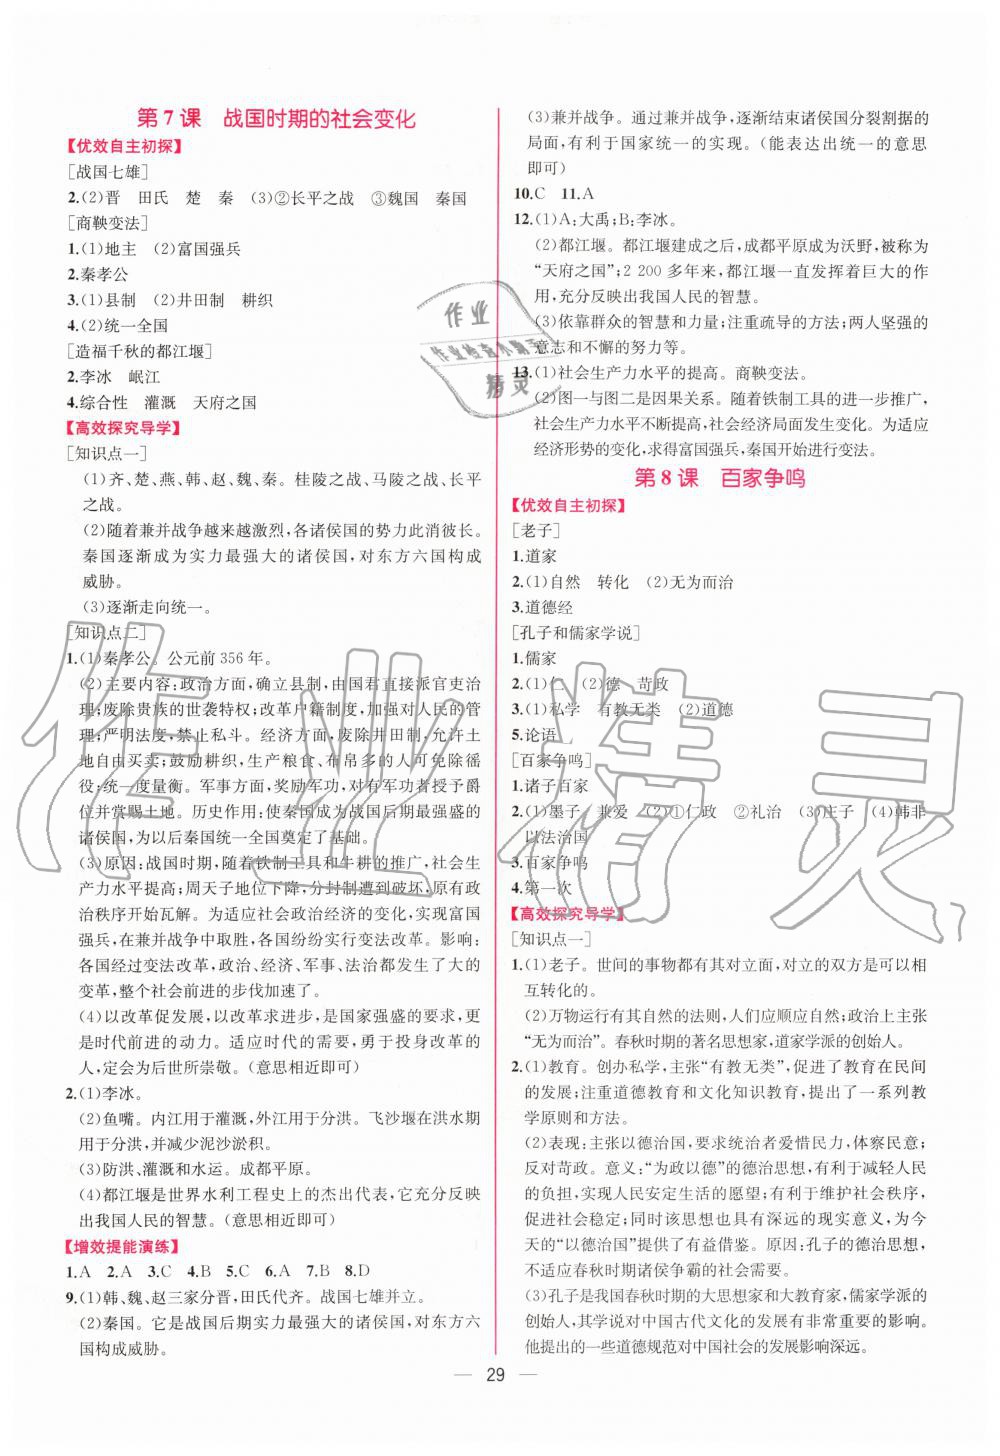 第7课 战国时期的社会变化
【优效自主初探】
[战国七雄]
2.(2)晋 田氏 楚 秦 (3)②长平之战 ③魏国 秦国
[商鞅变法]
1.(1)地主 (2)富国强兵
2.秦孝公
3.(1)县制 (2)井田制 耕织
4.(2)统一全国
[造福千秋的都江堰]
2.李冰 岷江
4.综合性 灌溉 天府之国
【高效探究导学】
[知识点一]
(1)齐、楚、燕、韩、赵、魏、秦。桂陵之战、马陵之战、长平
之战。
(2)随着兼并战争越来越激烈,各诸侯国的势力此消彼长。
秦国逐渐成为实力最强大的诸侯国,对东方六国构成
威胁。
(3)逐渐走向统一。
[知识点二]
1.(1)秦孝公。公元前356年。
(2)主要内容:政治方面,确立县制,由国君直接派官吏治
理;废除贵族的世袭特权;改革户籍制度,加强对人民的管
理;严明法度,禁止私斗。经济方面,废除井田制,允许土
地自由买卖;鼓励耕织,生产粮食、布帛多的人可免除徭
役;统一度量衡。军事方面,奖励军功,对有军功者授予爵
位并赏赐土地。历史作用:使秦国成为战国后期最强盛的
诸侯国,为以后秦国统一全国奠定了基础。
(3)原因:战国时期,随着铁制工具和牛耕的推广,社会生
产力水平提高;周天子地位下降,分封制遭到破坏,原有政
治秩序开始瓦解。为适应社会政治经济的变化,实现富国
强兵,在兼并战争中取胜,各国纷纷实行变法改革。影响:
各国经过变法改革,政治、经济、军事、法治都发生了大的
变革,整个社会前进的步伐加速了。
(4)以改革促发展,以改革求进步,是国家强盛的要求,更
是时代前进的动力。适应时代的需要,勇于投身改革的
人,定会为后世所崇敬。(意思相近即可)
2.(1)李冰。
(2)鱼嘴。内江用于灌溉,外江用于分洪。飞沙堰在洪水期
用于分洪,并减少泥沙淤积。
(3)防洪、灌溉和水运。成都平原。
(4)都江堰是世界水利工程史上的杰出代表,它充分反映
出我国人民的智慧。(意思相近即可)
【增效提能演练】
1.A 2.A 3.C 4.B 5.C 6.A 7.B 8.D
9.(1)韩、魏、赵三家分晋,田氏代齐。战国七雄并立。
(2)秦国。它是战国后期实力最强大的诸侯国,对东方六
国构成威胁。
(3)兼并战争。通过兼并战争,逐渐结束诸侯国分裂割据的
局面,有利于国家统一的实现。(能表达出统一的意思
即可)
10.C 11.A
12.(1)A:大禹;B:李冰。
(2)都江堰。都江堰建成之后,成都平原成为沃野,被称为
“天府之国”;2 200多年来,都江堰一直发挥着巨大的作
用,充分反映出我国人民的智慧。
(3)依靠群众的智慧和力量;注重疏导的方法;两人坚强的
意志和不懈的努力等。
13.(1)社会生产力水平的提高。商鞅变法。
(2)图一与图二是因果关系。随着铁制工具的进一步推广,
社会生产力水平不断提高,社会经济局面发生变化。为适应
经济形势的变化,求得富国强兵,秦国开始进行变法。
第8课 百家争鸣
【优效自主初探】
[老子]
1.道家
2.(1)自然 转化 (2)无为而治
3.道德经
[孔子和儒家学说]
1.儒家
2.(1)仁 (2)德 苛政
3.(1)私学 有教无类 (2)道德
5.论语
[百家争鸣]
1.诸子百家
2.(1)墨子 兼爱 (2)①仁政 ②礼治 (3)庄子 (4)韩非
以法治国
3.百家争鸣
4.第一次
【高效探究导学】
[知识点一]
1.(1)老子。世间的事物都有其对立面,对立的双方是可以相
互转化的。
(2)万物运行有其自然的法则,人们应顺应自然;政治上主张
“无为而治”。春秋时期的著名思想家,道家学派的创始人。
2.(1)教育。创办私学,主张“有教无类”,促进了教育在民间
的发展;注重道德教育和文化知识教育,提出了一系列教
学原则和方法。
(2)表现:主张以德治国,要求统治者爱惜民力,体察民意;
反对苛政。意义:“为政以德”的德治思想,有利于减轻人民
的负担,实现人民安定生活的愿望;有利于维护社会秩序,
促进社会稳定;同时该思想也具有深远的现实意义,为今
天的“以德治国”提供了有益借鉴。原因:孔子的德治思想,
不适应春秋时期诸侯争霸的社会需要。
(3)孔子是我国春秋时期的大思想家和大教育家,儒家学派的
创始人,其学说对中国古代文化的发展有非常重要的影响。
他提出的一些道德规范对中国社会的发展影响深远。
29
作业
作业检查小帮手
精灵
作业精灵